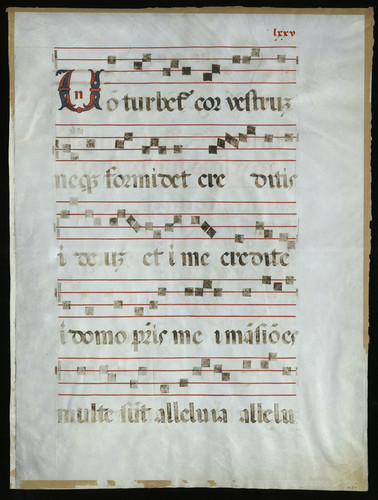 lxxv
Nō turbet cor vestrūz
neqz formidet cre ditis
i deūz et i me credite
i domo pr̄is me i māsiōes
multe sūt alleluia allelu